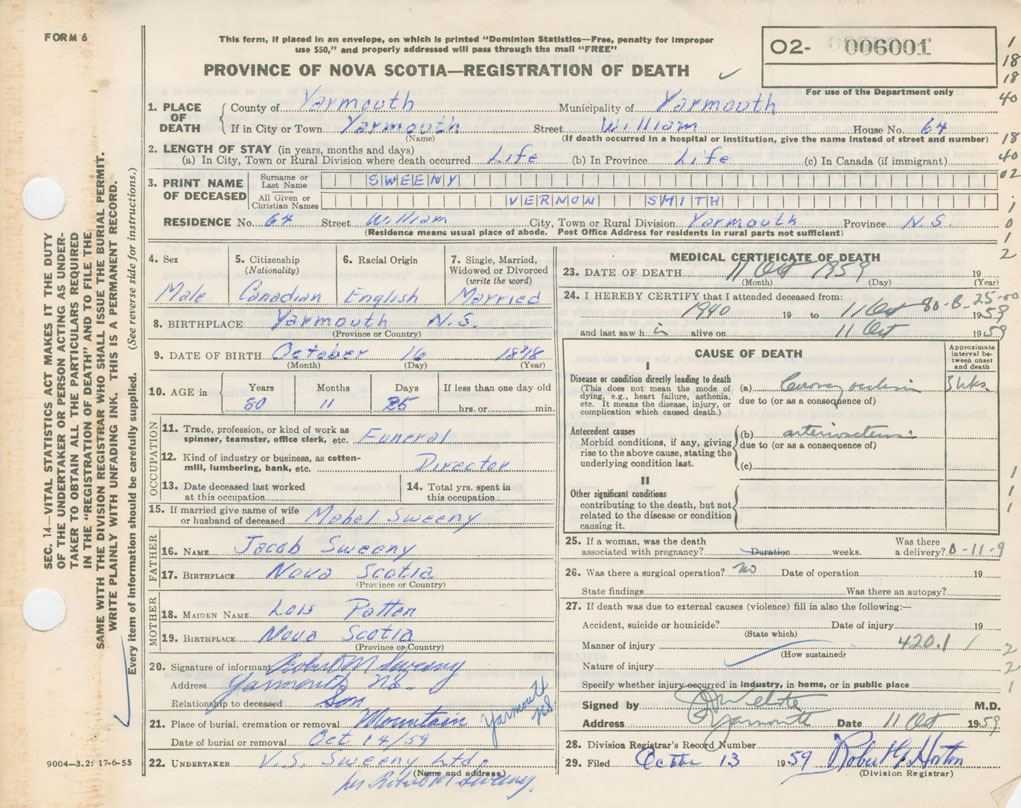 FORM 6
This form, if placed in an envelope, on which is printed "Dominion Statistics—Free, penalty for improper
use $50," and properly addressed will pass through the mail "FREE"
PROVINCE OF NOVA SCOTIA—REGISTRATION OF DEATH
O2- 006001
For use of the Department only
1
18
18
40
18
40
02
1
0
1
2
SEC. 14—VITAL STATISTICS ACT MAKES IT THE DUTY
OF THE UNDERTAKER OR PERSON ACTING AS UNDER-
TAKER TO OBTAIN ALL THE PARTICULARS REQUIRED
IN THE "REGISTRATION OF DEATH" AND TO FILE THE
SAME WITH THE DIVISION REGISTRAR WHO SHALL ISSUE THE BURIAL PERMIT.
WRITE PLAINLY WITH UNFADING INK. THIS IS A PERMANENT RECORD.
Every item of information should be carefully supplied. (See reverse side for instructions.)
1. PLACE OF DEATH
County of Yarmouth Municipality of Yarmouth
If in City or Town Yarmouth Street William House No. 64
(Name) (If death occurred in a hospital or institution, give the name instead of street and number)
2. LENGTH OF STAY (in years, months and days)
(a) In City, Town or Rural Division where death occurred Life (b) In Province Life (c) In Canada (if immigrant)
3. PRINT NAME OF DECEASED
Surname or Last Name SWEENY
All Given or Christian Names VERNON SMITH
RESIDENCE No. 64 Street William City, Town or Rural Division Yarmouth Province N.S.
(Residence means usual place of abode. Post Office Address for residents in rural parts not sufficient)
4. Sex
Male
5. Citizenship
(Nationality)
Canadian
6. Racial Origin
English
7. Single, Married,
Widowed or Divorced
(write the word)
Married
8. BIRTHPLACE Yarmouth N.S.
(Province or Country)
9. DATE OF BIRTH October 16 1878
(Month) (Day) (Year)
10. AGE in
Years Months Days If less than one day old
80 11 25 hrs. or min.
OCCUPATION
11. Trade, profession, or kind of work as
spinner, teamster, office clerk, etc. Funeral
12. Kind of industry or business, as cotton-
mill, lumbering, bank, etc. Director
13. Date deceased last worked
at this occupation
14. Total yrs. spent in
this occupation
15. If married give name of wife
or husband of deceased Mabel Sweeny
FATHER
16. NAME Jacob Sweeny
17. BIRTHPLACE Nova Scotia
(Province or Country)
MOTHER
18. MAIDEN NAME Lois Patten
19. BIRTHPLACE Nova Scotia
(Province or Country)
20. Signature of informant Robert M Sweeny
Address Yarmouth N.S.
Relationship to deceased Son
21. Place of burial, cremation or removal Mountain Yarmouth NS
Date of burial or removal Oct 14/59
22. UNDERTAKER V.S. Sweeny Ltd.
(Name and address)
per Robert M Sweeny
9004—3.2: 17-6-55
MEDICAL CERTIFICATE OF DEATH
23. DATE OF DEATH 11 Oct 1959 19
(Month) (Day) (Year)
24. I HEREBY CERTIFY that I attended deceased from: 80-B-25-00
1940 19 to 11 Oct 1959
and last saw h in alive on 11 Oct 1959
CAUSE OF DEATH
Approximate
interval be-
tween onset
and death
I
Disease or condition directly leading to death
(This does not mean the mode of
dying, e.g., heart failure, asthenia,
etc. It means the disease, injury, or
complication which caused death.)
(a) Coronary occlusion 3 wks
due to (or as a consequence of)
Antecedent causes
Morbid conditions, if any, giving
rise to the above cause, stating the
underlying condition last.
(b)
due to (or as a consequence of)
(c)
II
Other significant conditions
contributing to the death, but not
related to the disease or condition
causing it.
1
1
1
25. If a woman, was the death
associated with pregnancy? Duration weeks. Was there
a delivery? 0-11-9
26. Was there a surgical operation? no Date of operation 19
State findings Was there an autopsy?
27. If death was due to external causes (violence) fill in also the following:—
Accident, suicide or homicide? Date of injury 19
(State which)
Manner of injury 420.1 / 2
(How sustained)
Nature of injury 2
Specify whether injury occurred in industry, in home, or in public place 1
Signed by M.D.
Address Yarmouth Date 11 Oct 1959
28. Division Registrar's Record Number
29. Filed October 13 1959 Robert G Horton
(Division Registrar)